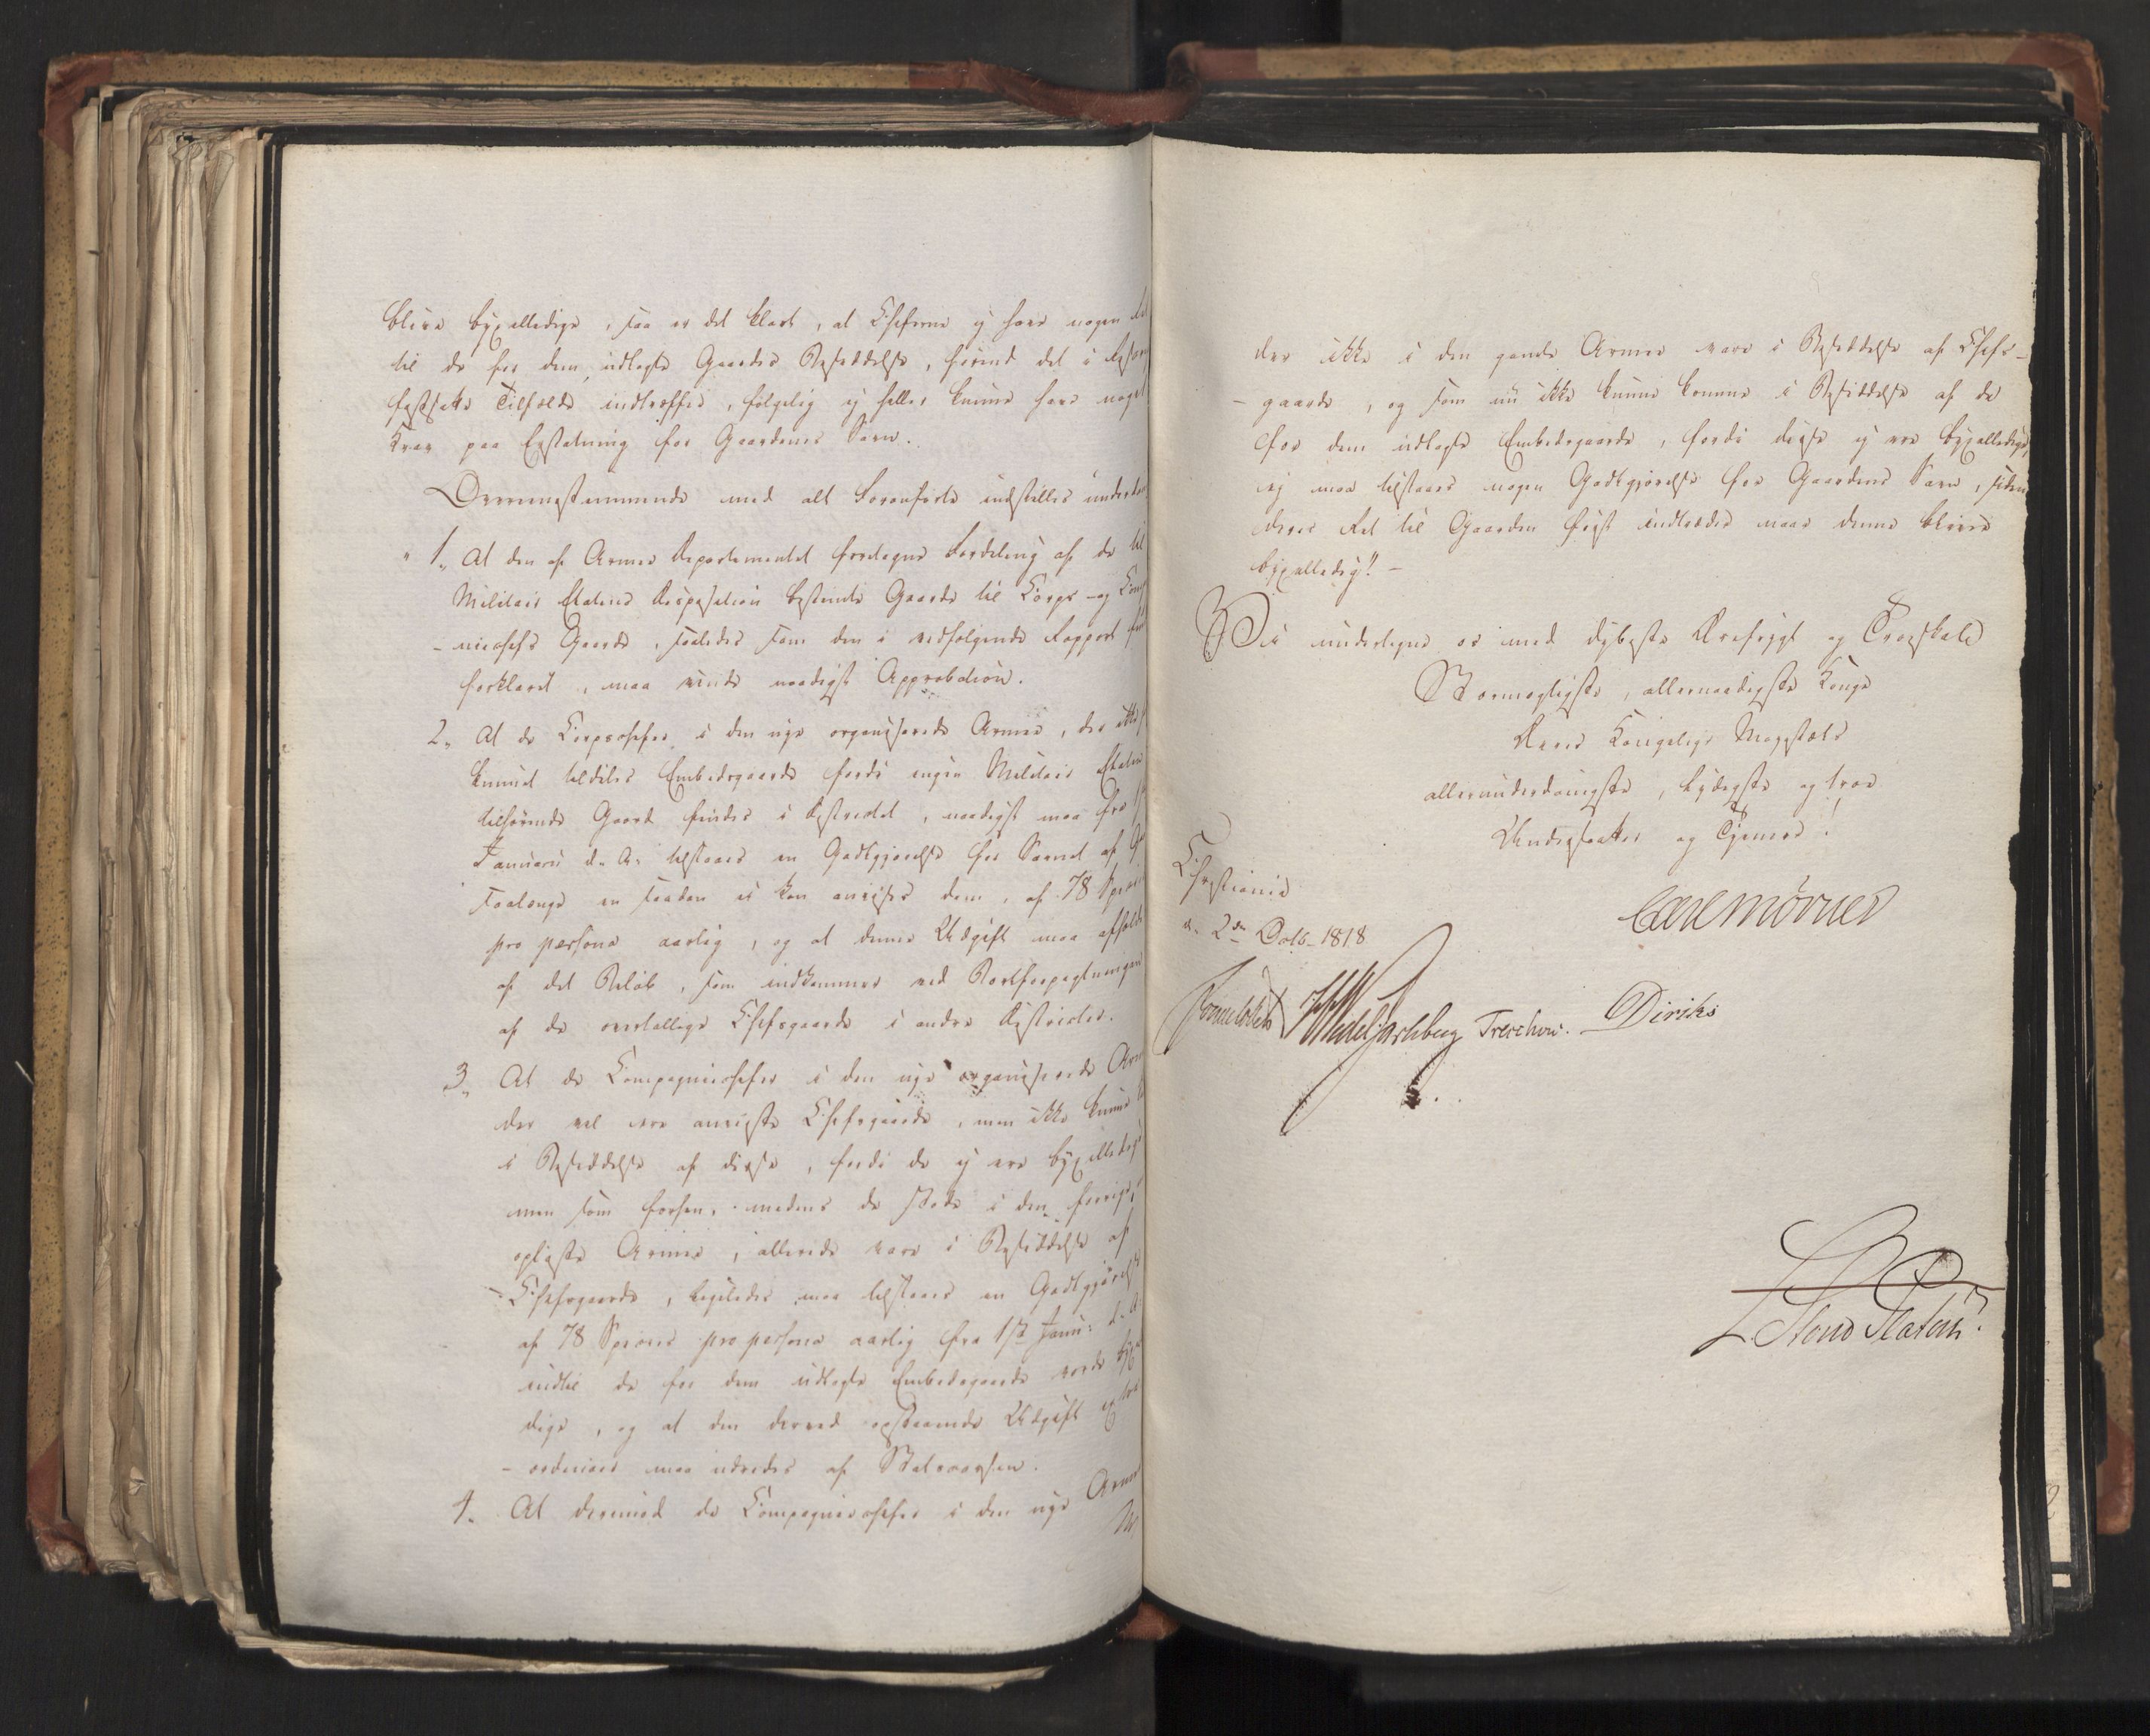 blive byxelledige, saa er det klart, at Chefene ej have nogen Ret
til de for dem udlagte Gaardes Besiddelse, førend det i Resol
fastsatte Tilfælde indtræffer, følgelig ej heller kunne have noget
Krav paa Erstatning for Gaardenes Savn.
Overeensstemmende med alt Foranførte indstilles underda
" 1., At den af Armee Departementet foretagne Fordeling af de til
Militair Etatens Disposition bestemte Gaarde til Corps- og Comp
-niechefs Gaarde, saaledes som den i vedfølgende Rapport
forklaret, maa vinde naadigst Approbation.
2., At de Corpschefer i den nye organiserede Armee, der ikke
kunnet tildeles Embedsgaarde fordi ingen Militair Etaten
tilhørende Gaard findes i Distriktet, naadigst maa fra 1ste
Januarii d. A. tilstaaes en Godtgjørelse for Savnet af
saalænge en saadan ei kan anvises dem, af 78 Specier
pro persona aarlig, og at denne Udgift maa afholdes
af det Beløb, som indkommer ved Bortforpagtningen
af de overtallige Chefsgaarde i andre Distrikter.
3., At de Compagniechefer i den nye organiserede Arm
der vel ere anviste Chefsgaarde, men ikke kunne
i Besiddelse af disse, fordi de ej ere byxelledige
men som forhen, medens de stode i den forrige,
opløste Armee, allerede vare i Besiddelse af
Chefsgaarde, ligeledes maa tilstaaes en Godtgjørelse
af 78 Species pro persona aarlig fra 1ste Janu: d. A.
indtil de for dem udlagte Embedsgaarde vorde byxel
dige, og at den derved opstaaende Udgift extra
-ordinair maa udredes af Statscassen.
4. At derimod de Compagniechefer i den nye Armee
der ikke i den gamle Armee vare i Besiddelse af Chefs-
-gaarde, og som nu ikke kunne komme i Besiddelse af de
for dem udlagte Embedsgaarde, fordi disse ej ere byxelledige,
ej maa tilstaaes nogen Godtgjørelse for Gaardens Savn, siden
deres Ret til Gaarden først indtræder naar denne bliver
byxelledig". -
Vi undertegne os med dybeste Ærefrygt og Troeskab
Stormægtigste, allernaadigste Konge
Deres Kongelige Majestæts
allerunderdanigste, lydigste og troe
Undersaatter og Tjenere!
Christiania
d. 2den Octb. 1818
Carl Mörner
Sommerhielm Wedel Jarlsberg Treschow. Diriks
L. Stoud Platou.